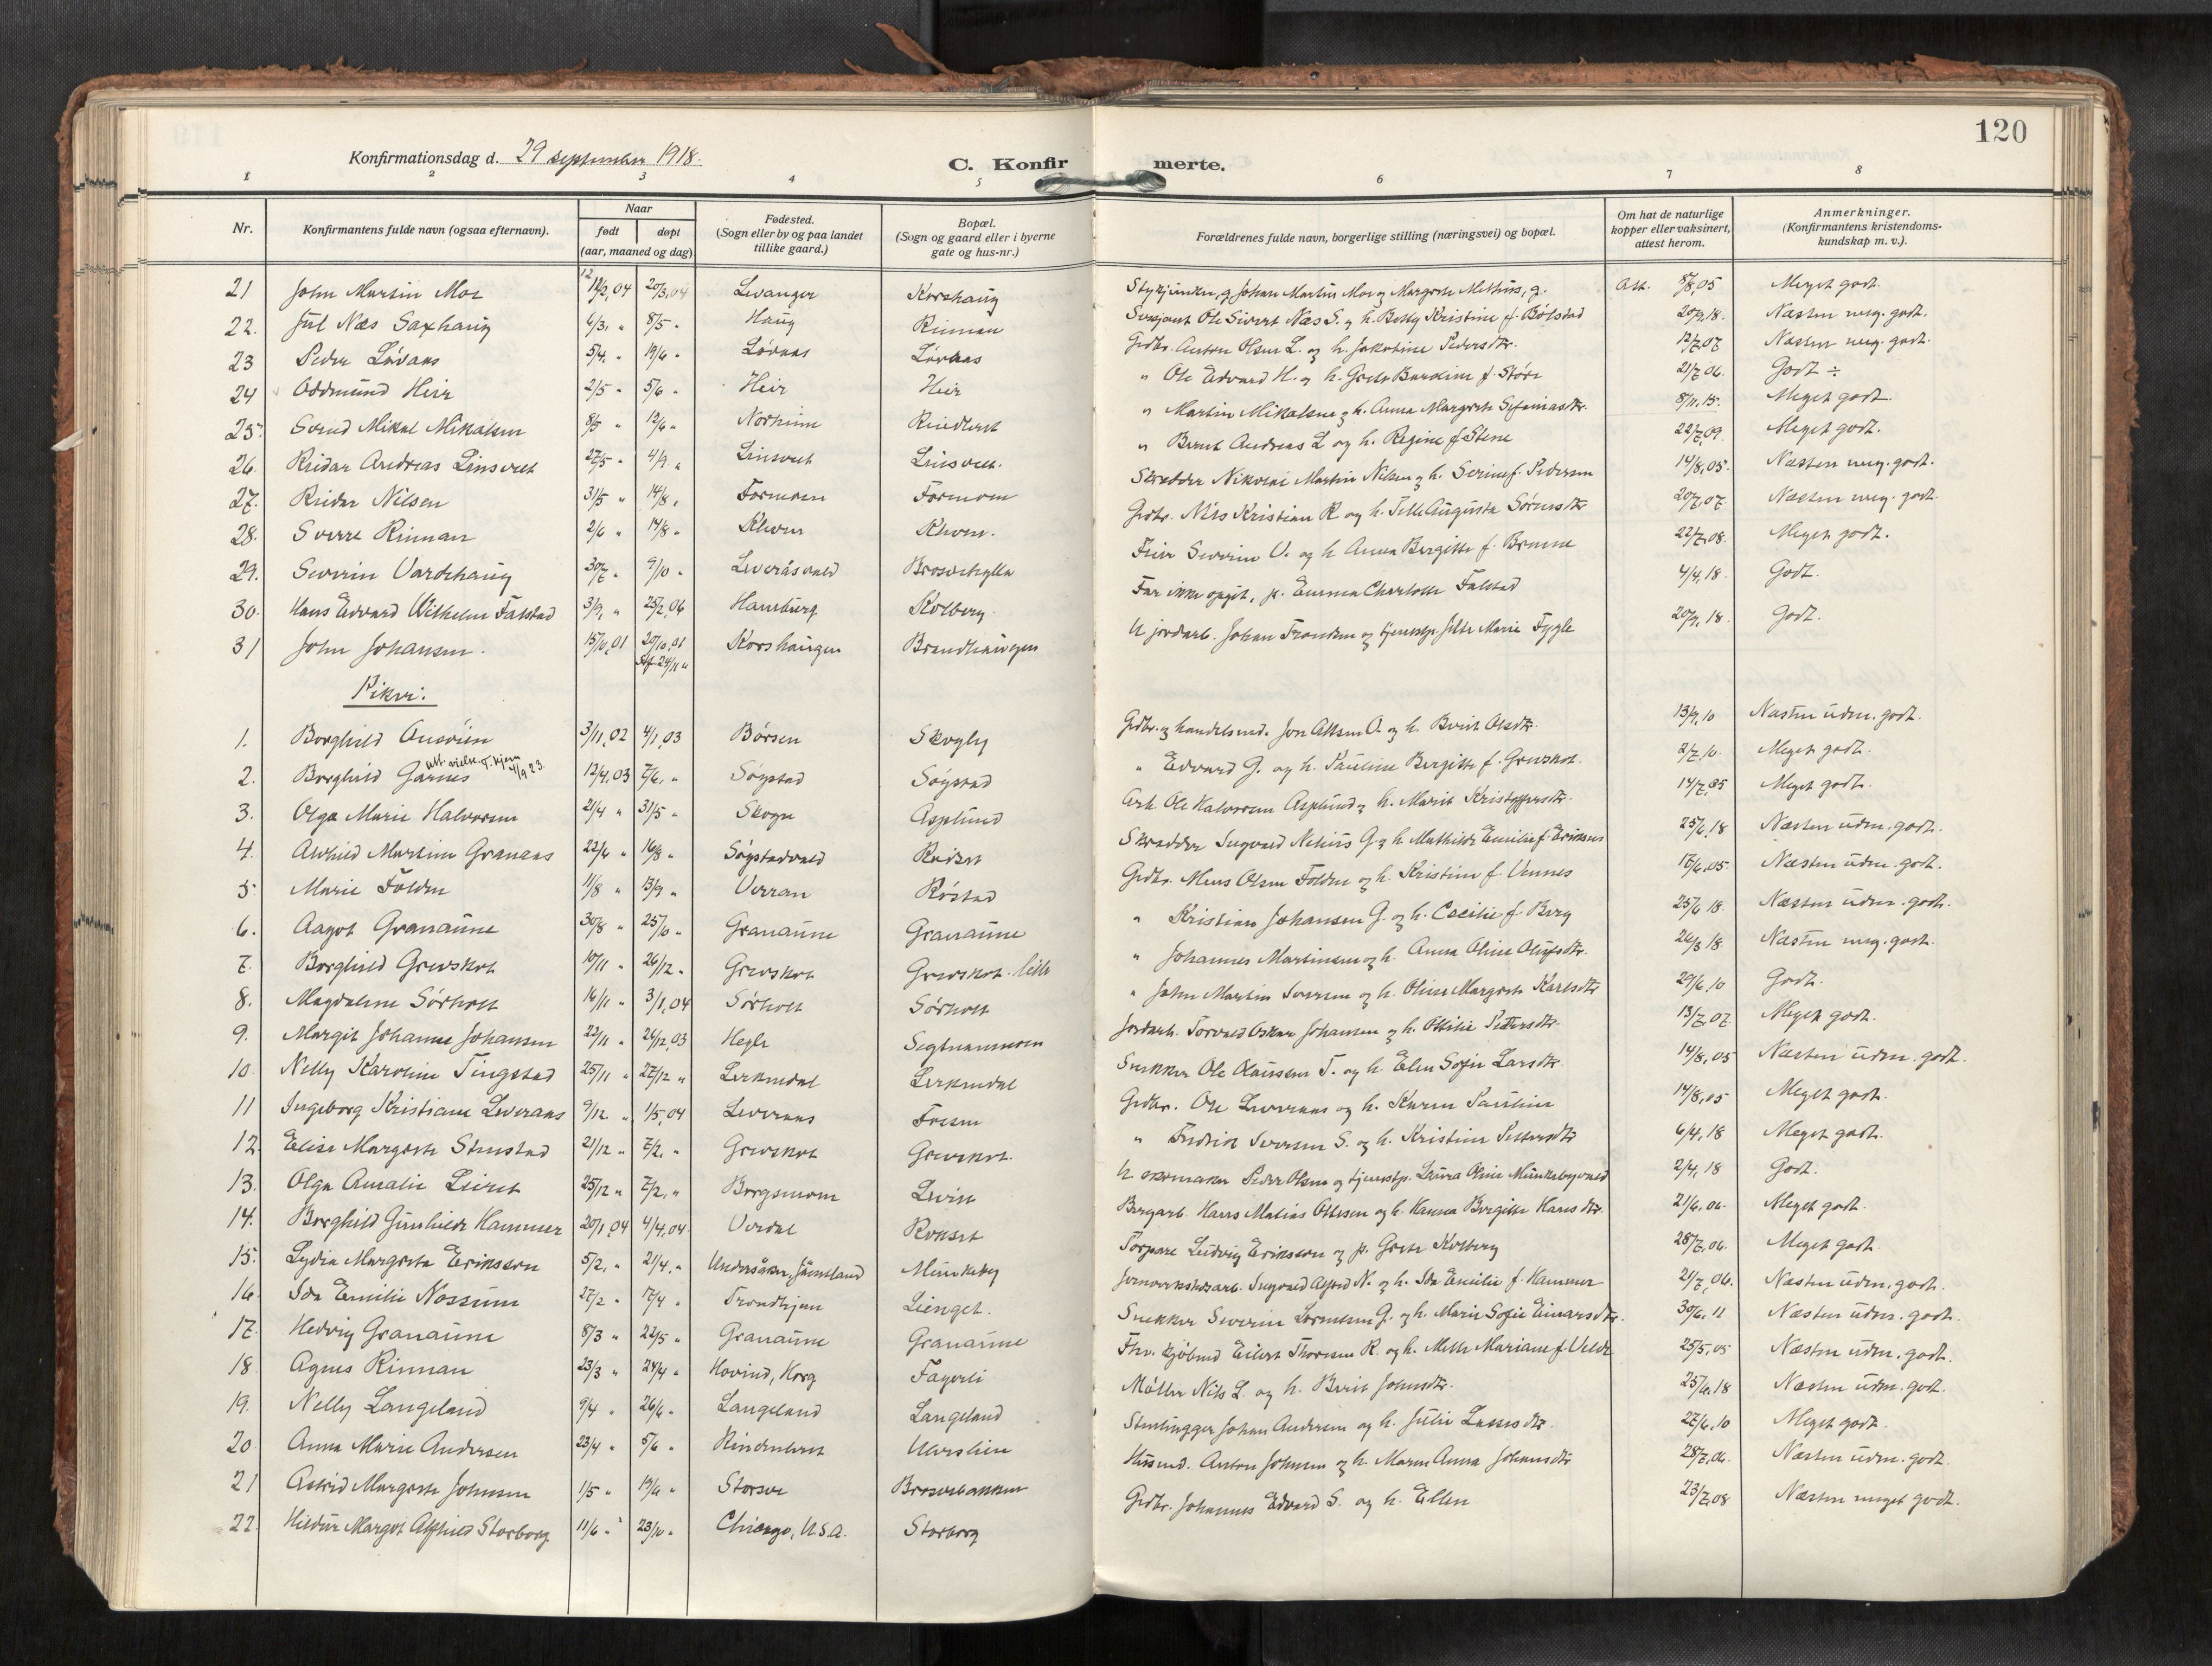 120
Konfirmationsdag d. 29 september 1918.
C. Konfirmerte.
1 2 3 4 5 6 7 8
Nr.
Konfirmantens fulde navn (ogsaa efternavn).
Naar
født døpt
(aar, maaned og dag)
Fødested.
(Sogn eller by og paa landet
tillike gaard.)
Bopæl.
(Sogn og gaard eller i byerne
gate og hus-nr.)
Forældrenes fulde navn, borgerlige stilling (næringsvei) og bopæl.
Om hat de naturlige
kopper eller vaksinert,
attest herom.
Anmerkninger.
(Konfirmantens kristendoms-
kundskap m. v.).
21 John Martin Moe 20/3,04 Levanger Korshaug Johan Martin Moe og Margrete Att. 8/8,05 Meget godt.
22. Jul Næs Saxhaug 6/3, " 8/5 " Haug Rinnan Sersjant Ole Sivert Næs S. og h. Betty Kristine f. Bølstad 20/9,18. Næsten meg. godt.
23 Peder Løvaas 5/4. " 19/6 " Løvaas Løvaas Grdbr. Anton Olsen L. og h. Jakobine Pedersdtr. 12/7,07 Næsten meg. godt.
24 Oddmund Heir 2/5 " 5/6 " Heir Heir " Ole Edvard H. og h. Grete Burdine f. Støre 21/7,06. Godt ÷
25. Svend Mikal Mikalsen 8/5 " 12/6 " Norheim Rindsæt " Martin Mikalsen og h. Anna Margrete 8/11,15. Meget godt.
26. Reidar Andreas Linsvæt 27/5 " 4/9 " Linsvæt Linsvæt. " Bernt Andreas L og h. Regine f. Stene 22/7,09. Meget godt.
27. Reidar Nilsen 31/5 " 14/8, Formoen Formoen Skrædder Nikolai Martin Nilsen og h. Serine f. Pedersen 14/8,05. Næsten meg. godt.
28. Sverre Rinnan 2/6 " 14/8 " Khven Khven. Grdbr. Nils Kristian R og h. Jelle Augusta Sørensdtr 20/7,07. Næsten meg. godt.
29. Severin Vardehaug 30/7 " 9/10 " Leveråsvald Brosvehylla Feier Severin V. og h Anna Bergitte f. Bremne 22/7,08. Meget godt.
30. Hans Edvard Wilhelm Falstad 3/9, " 25/2,06 Hamburg Kolberg. Far ikke opgit, p. Emma Charlotte Falstad 4/4,18. Godt.
31 John Johansen. 15/10,01 20/10,01 Korshaugen Brandhaugen U jordarb. Johan Tronsen og tjenestp. Jelle Marie Fygle 20/9,18. Godt.
24/11 "
Piker:
1. Borghild Ausvien 3/11,02 4/1,03 Børsen Skogly Grdbr. og handelsmd. Jon Attsen A. og h. Berit Olsdtr. 13/9,10 Næsten udm. godt.
att. vielse T.hjem 4/9 23.
2. Borghild Garnes 12/4,03 7/6, " Søgstad Søgstad " Edvard G. og h. Pauline Bergitte f. Grevskot. 2/7,10. Meget godt.
3. Olga Marie Halvorsen 21/4 " 31/5 " Skogn Asplund Arb. Ole Halvorsen Asplund og h. Marit Kristoffersdtr. 14/7,05 Meget godt.
4. Alvhild Martine Granaas 22/6 " 16/8 " Søgstadvald Reiset Skrædder Ingvald Nelius G. og h Mathilde Emilie f. Eriksen 25/6,18 Næsten udm. godt.
5 Marie Folden 11/8 " 13/9 " Verran Røstad Grdbr. Mons Olsen Folden og h. Kristine f. Vennes 17/6,05. Næsten udm. godt.
6. Aagot Granaune 30/8 " 25/10 " Granaune Granaune " Kristian Johansen G. og h. Cecilie f. Berg 25/6 18. Næsten udm. godt.
7. Borghild Grevskot 10/11 " 26/12 " Grevskot Grevskot lille " Johannes Martinsen og h. Anna Oline Olufsdtr. 26/3 18. Næsten meg. godt.
8. Magdalene Sørholt 16/11 " 3/1,04 Sørholt Sørholt " John Martin Iversen og h. Oline Margrete Karlsdtr 29/6,10 Godt.
9. Margit Johanne Johansen 22/11 " 26/12,03 Hegle Segtnanmoen Jordarb. Torvald Oskar Johansen og h. Ottilie Petersdtr. 13/7,07. Meget godt.
10. Nelly Karoline Tingstad 25/11 " 27/12 " Lerkendal Lerkendal Snekker Ole Olaussen T. og h. Elen Sofie Larsdtr. 14/8,05 Næsten udm. godt.
11 Ingeborg Kristiane Leveraas 9/12 " 1/5,04 Leveraas Fossen Grdbr. Ole Leveraas og h. Karen Pauline 14/8,05 Meget godt.
12. Elise Margrete Stenstad 21/12 " 7/2, " Grevskot Grevskot. " Fredrik Iversen S. og h. Kristine Pettersdtr 6/4,18 Meget godt.
13. Olga Amalie Leiret 25/12 " 7/2, " Borgsmoen Leiret U. skomaker Peder Olsen og tjenestp. Laura Oline Munkebyvald 2/4,18 Godt.
14. Borghild Gunhilde Hammer 20/1,04 4/4,04. Verdal Rokset Bergarb. Hans Matias Ottesen og h. Hanna Bergitte Hansdtr. 21/6,06. Meget godt.
15. Lydia Margreta Eriksson 5/2, " 21/4, " Undersåker, Jämtland Munkeby Torpare Ludvig Eriksson og p. Grete Kolberg 28/7,06. Meget godt.
16. Ida Emilie Nossum 27/2 " 17/4 " Trondhjem Lienget. Ingvald Alfred N. og h. Ida Emilie f. Hammer 21/7,06. Næsten udm. godt.
17. Hedvig Granaune 8/3 " 22/5 " Granaune Granaune Snekker Severin Lorntsen G. og h. Marie Sofie Einarsdtr. 30/6,11 Næsten udm. godt.
18. Agnes Rinnan 23/3 " 24/4 " Hovind, Horg Fagerli Fhv. kjøbmd Eilert Thoresen R. og h. Mette Mariane f. Velde 25/5,05 Næsten udm. godt.
19. Nelly Langeland 9/4 " 26/6 " Langeland Langeland Møller Nils L. og h. Berit Johnsdtr. 25/6,18 Næsten udm. godt.
20. Anna Marie Andersen 23/4 " 5/6 " Rindsæt Ulvslien Johan Andersen og h. Julie Lassesdtr. 27/6,10 Meget godt.
21 Astrid Margrete Johnsen 1/5 " 19/6 " Storsve Brosvebakken Husmd. Anton Johnsen og h. Maren Anna Johansdtr 28/7,06. Næsten udm. godt.
22. Hildur Margot Alfhild Storborg 11/6 " 23/10 " Chicago, U.S.A. Storborg Grdbr. Johannes Edvard S. og h. Ellen 23/7,08 Næsten meget godt.